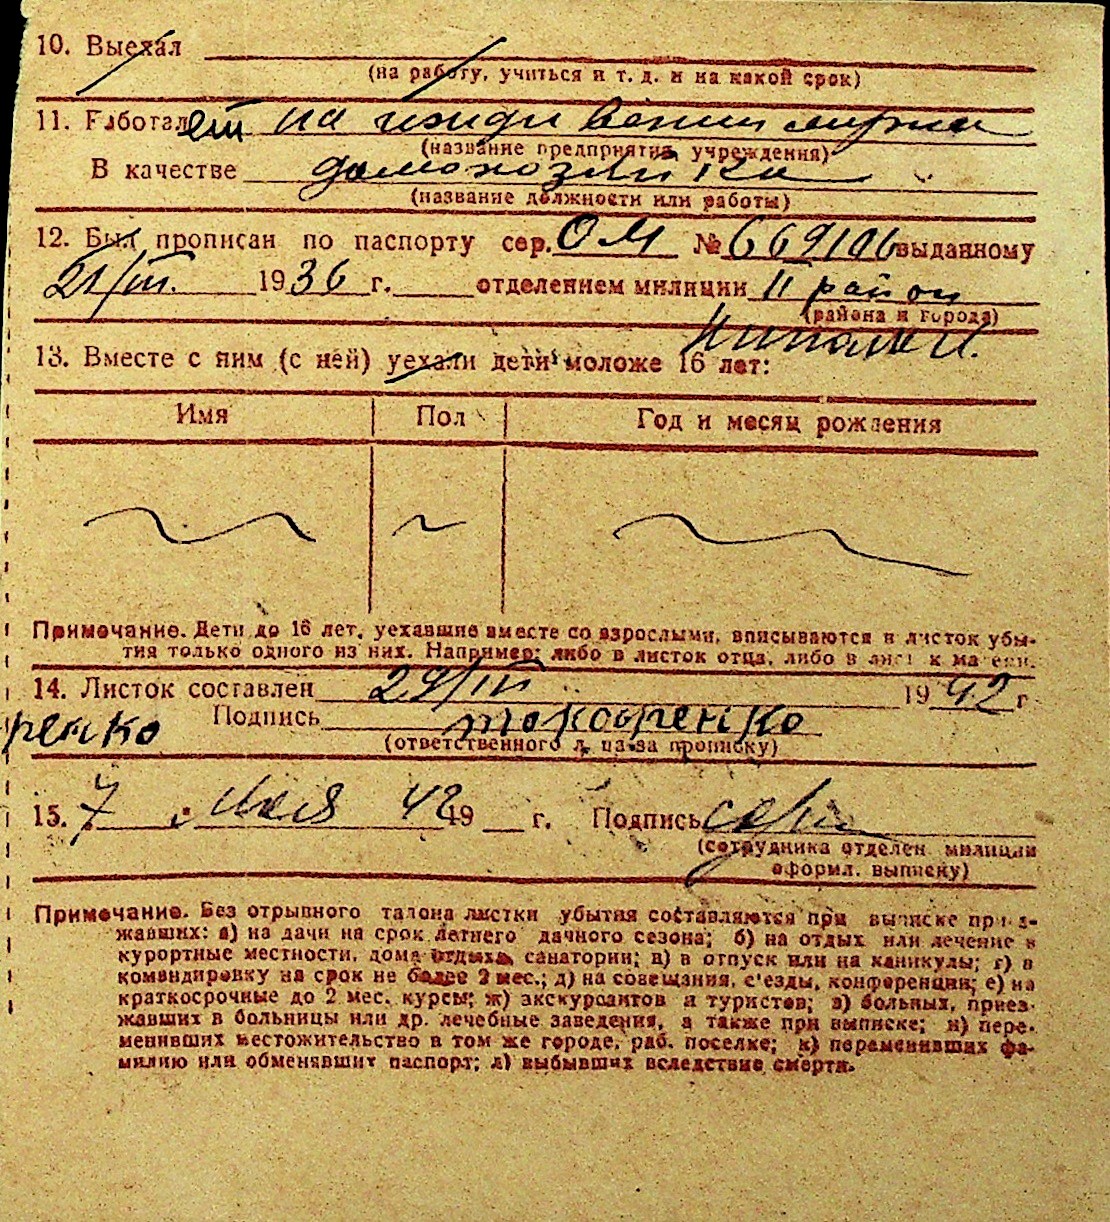 10. Выехал
(на работу, учиться и т. д. и на какой срок)
11. Работает на иждивении мужа
(название предприятия, учреждения)
В качестве домохозяйка
(название должности или работы)
12. Был прописан по паспорту сер. ОМ № 669106 выданному
21/III. 1936 г. отделением милиции 11 район
(района и города)
13. Вместе с ним (с ней) уехали дети моложе 16 лет:
Имя Пол Год и месяц рождения
Примечание. Дети до 16 лет, уехавшие вместе со взрослыми, вписываются в листок убы-
тия только одного из них. Например: либо в листок отца, либо в листок матери.
14. Листок составлен 29/III 1942 г
ренко Подпись Токаренко
(ответственного лица за прописку)
15. 7 Мая 42 19 г. Подпись
(сотрудника отделен. милиции
оформл. выписку)
Примечание. Без отрывного талона листки убытия составляются при выписке приез-
жавших: а) на дачи на срок летнего дачного сезона; б) на отдых или лечение в
курортные местности, дома отдыха, санатории; в) в отпуск или на каникулы; г) в
командировку на срок не более 2 мес.; д) на совещания, с'езды, конференции; е) на
краткосрочные до 2 мес. курсы; ж) экскурсантов и туристов; з) больных, приез-
жавших в больницы или др. лечебные заведения, а также при выписке; и) пере-
менивших местожительство в том же городе, раб. поселке; к) переменивших фа-
милию или обменявших паспорт; л) выбывших вследствие смерти.